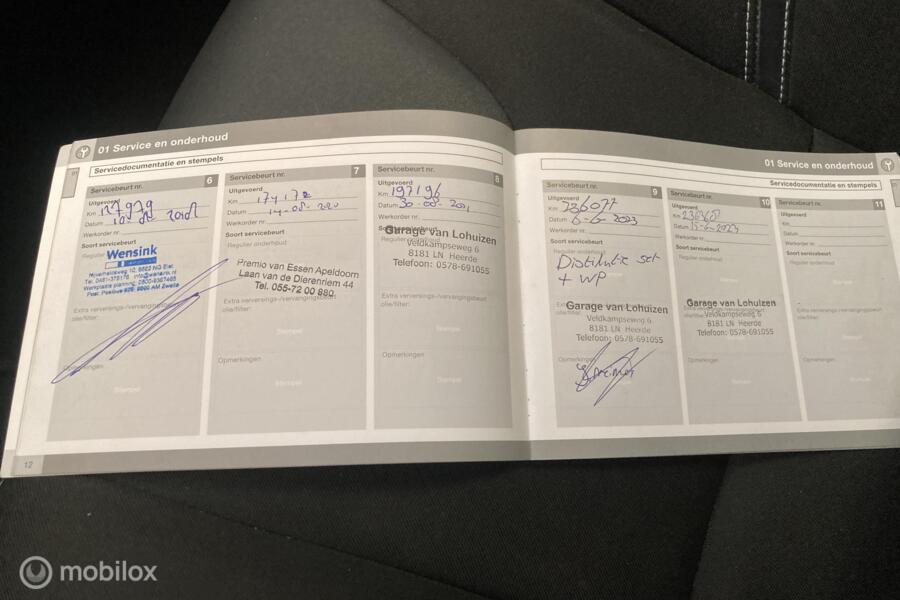 01 Service en onderhoud
Servicedocumentatie en stempels
01
Servicebeurt nr. 6
Uitgevoerd
Km
Datum
Werkorder nr.
Soort servicebeurt
Regulier
Wensink
Extra verversings-/vervangingsbeurt
olie/filter:
Opmerkingen
Stempel
12
Servicebeurt nr. 7
Uitgevoerd
Km 174172
Datum 14-08-2020
Werkorder nr.
Soort servicebeurt
Regulier onderhoud
Premio van Essen Apeldoorn
Laan van de Dierenriem 44
Tel. 055-72 00 880
Extra verversings-/vervangingsbeurt
olie/filter:
Stempel
Opmerkingen
Stempel
Servicebeurt nr. 8
Uitgevoerd
Km 197196
Datum 30-08-2021
Werkorder nr.
Garage van Lohuizen
Veldkampseweg 6
8181 LN Heerde
Telefoon: 0578-691055
Extra verversings-/vervangingsbeurt
olie/filter:
Stempel
Opmerkingen
Stempel
01 Service en onderhoud
Servicedocumentatie en stempels
Servicebeurt nr. 9
Uitgevoerd
Km 236077
Datum 6-6-2023
Werkorder nr.
Soort servicebeurt
Regulier onderhoud
Distributie set
+ WP
Garage van Lohuizen
Veldkampseweg 6
8181 LN Heerde
Telefoon: 0578-691055
Opmerkingen
Servicebeurt nr. 10
Uitgevoerd
Km
Datum 15-6-2023
Werkorder nr.
Soort servicebeurt
Regulier onderhoud
Garage van Lohuizen
Veldkampseweg 6
8181 LN Heerde
Telefoon: 0578-691055
Opmerkingen
Stempel
Servicebeurt nr. 11
Uitgevoerd
Km
Datum
Werkorder nr.
Soort servicebeurt
Regulier onderhoud
Extra verversings-/vervangingsbeurt
olie/filter:
Stempel
Opmerkingen
Stempel
mobilox